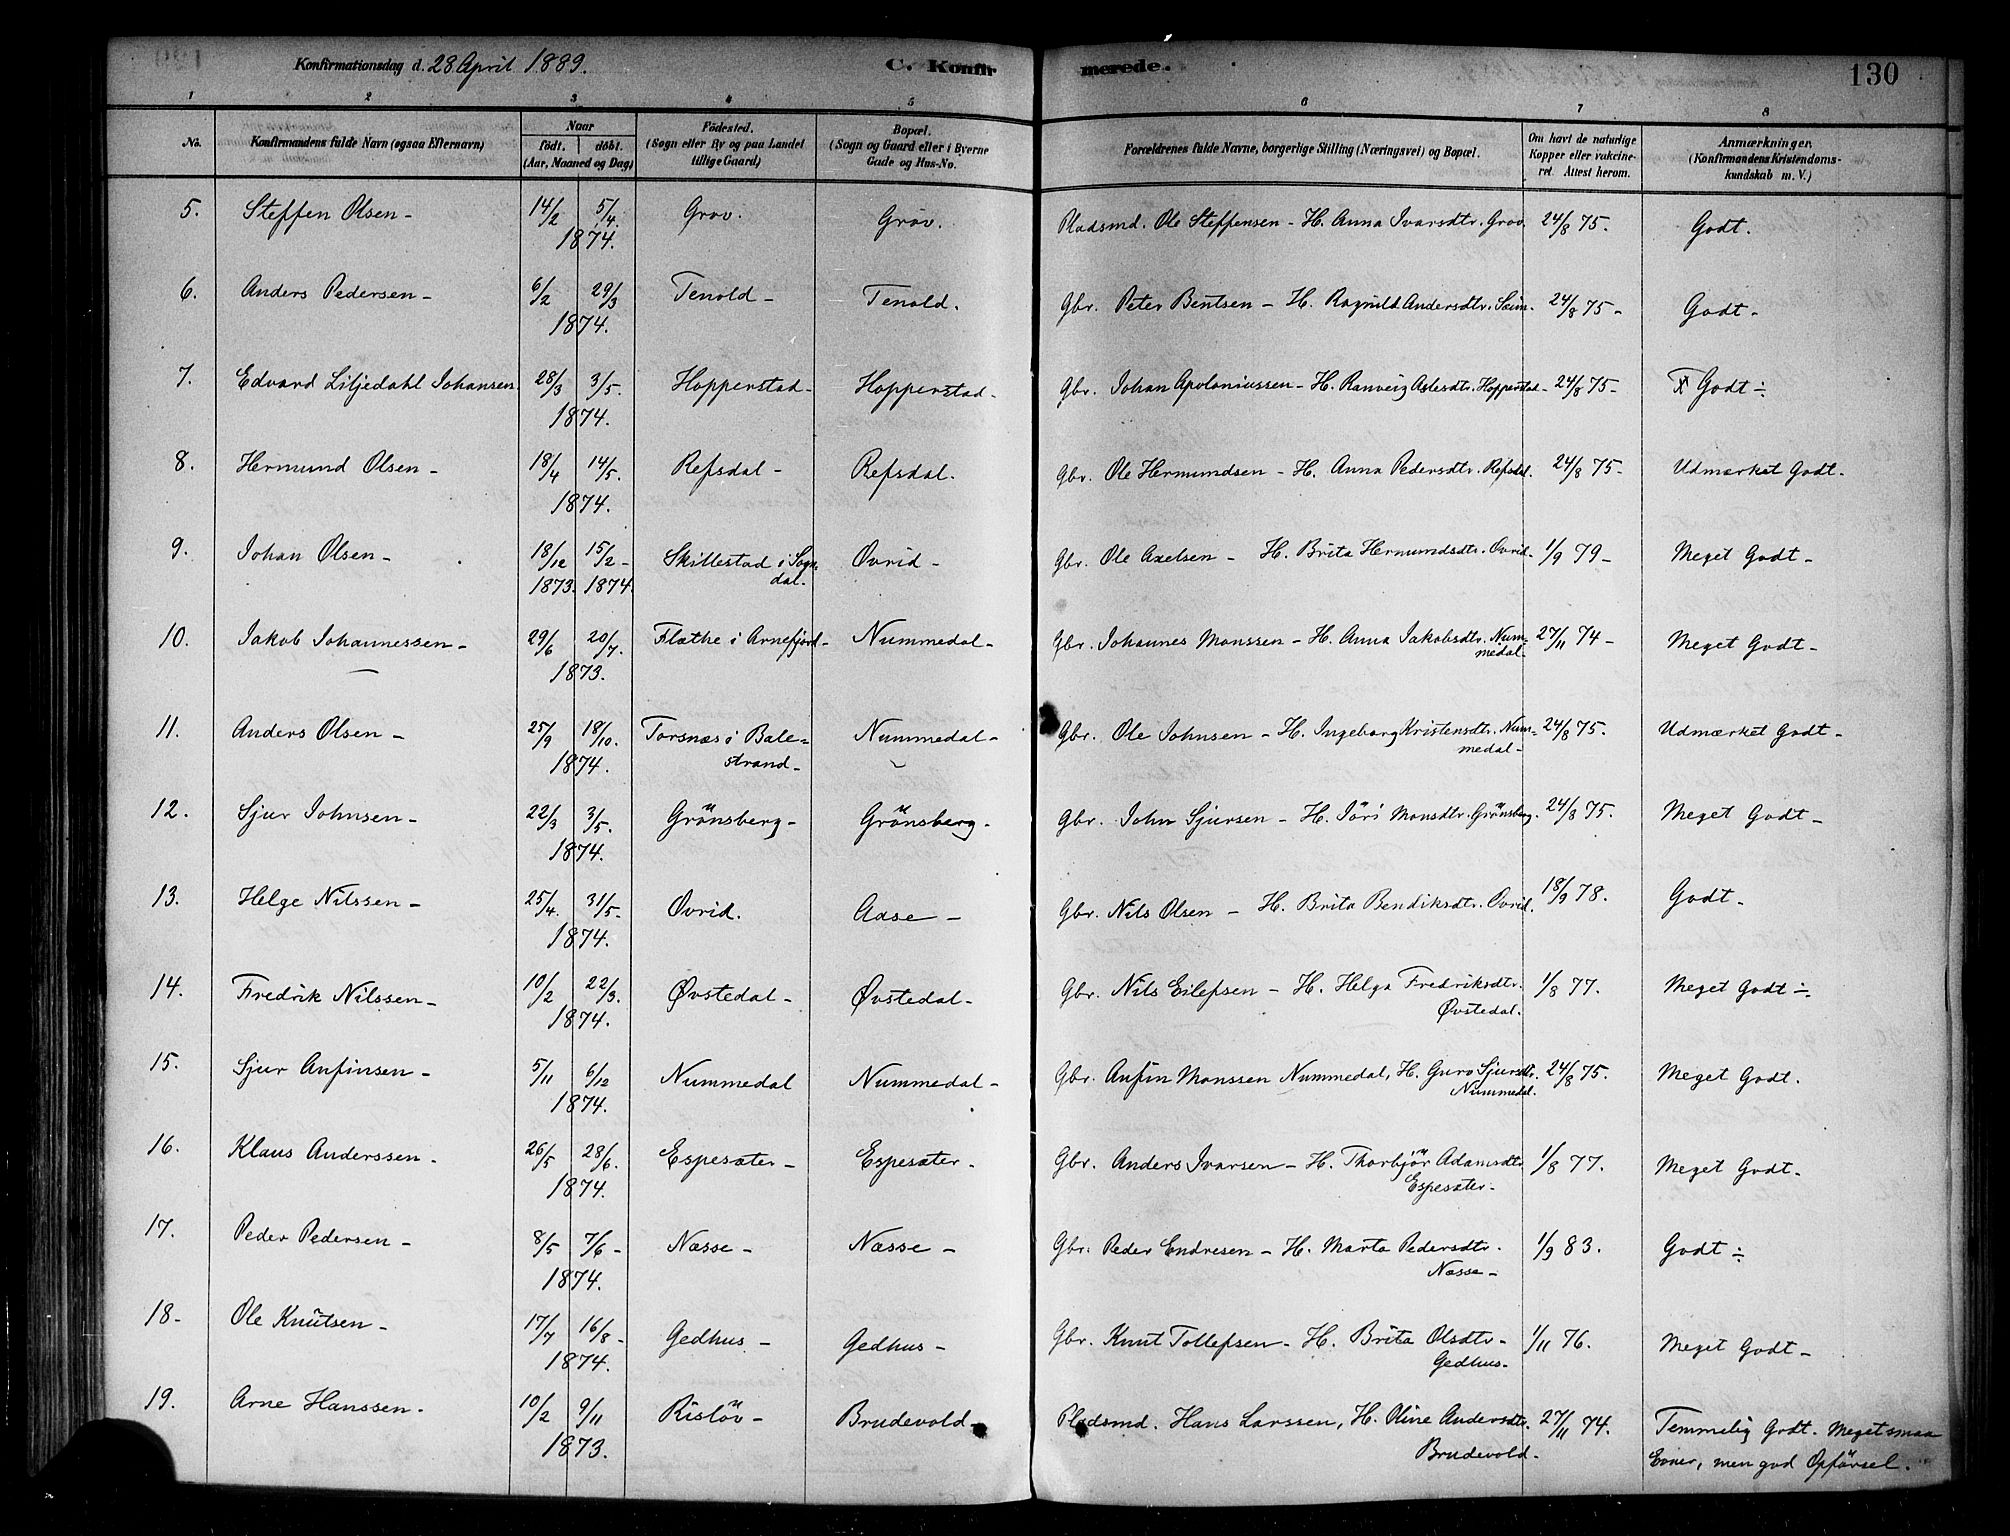 Konfirmationsdag d. 28 April 1889. C. Konfirmerede. 130
1 2 3 4 5 6 7 8
No. Konfirmandens fulde Navn (ogsaa Efternavn) Naar födt. döbt. (Aar, Maaned og Dag) Födested. (Sogn eller By og paa Landet tillige Gaard) Bopæl. (Sogn og Gaard eller i Byerne Gade og Hus-No. Forældrenes fulde Navne, borgerlige Stilling (Næringsvei) og Bopæl. Om havt de naturlige Kopper eller vakcineret. Attest herom. Anmærkninger. (Konfirmandens Kristendomskundskab m. V.)
5. Steffen Olsen - 14/2 5/4. 1874. Grov. Grov. Pladsmd. Ole Steffensen - H. Anna Ivarsdtr. Grov. 24/8 75. Godt.
6. Anders Pedersen - 6/2 29/3 1874. Tenold - Tenold. Gbr. Peter Bentsen - H. Ragnild Andersdtr. Seim. 24/8 75 - Godt -
7. Edvard Liljedahl Johansen 28/3 3/5. 1874. Hopperstad - Hopperstad - Gbr. Johan Apoloniussen - H. Ranveig Aslesdtr. Hopperstad - 24/8 75 - Godt ÷
8. Hermund Olsen - 18/4 14/5. 1874. Refsdal - Refsdal. Gbr. Ole Hermundsen - H. Anna Pedersdtr. Refsdal. 24/8 75 - Udmærket Godt.
9. Johan Olsen - 18/12 1873. 15/2 - 1874. Skillestad i Sogndal. Ovrid - Gbr. Ole Axelsen - H. Brita Hermundsdtr. Ovrid - 1/9 79 - Meget Godt -
10. Jakob Johannessen - 29/6 20/7. 1873. Flæthe i Arnefjord - Nummedal - Gbr. Johannes Monssen - H. Anna Jakobsdtr. Nummedal - 27/11 74 - Meget Godt -
11. Anders Olsen - 25/9 18/10. 1874. Torsnæs i Balestrand - Nummedal - Gbr. Ole Johnsen - H. Ingeborg Kristensdtr. Nummedal - 24/8 75. Udmærket Godt -
12. Sjur Johnsen - 22/3 3/5. 1874. Grönsberg - Grönsberg - Gbr. John Sjursen - H. Jöri Monsdtr. Grönsberg. 24/8 75. Meget Godt -
13. Helge Nilssen - 25/4. 31/5. 1874. Ovrid. Aase - Gbr. Nils Olsen - H. Brita Bendiksdtr. Ovrid. 18/9 78. Godt -
14. Fredrik Nilssen - 10/2 22/3. 1874. Øvstedal - Øvstedal - Gbr. Nils Eilefsen - H. Helga Fredriksdtr. Øvstedal. 1/8 77. Meget Godt ÷
15. Sjur Anfinsen - 5/11 6/12 1874. Nummedal Nummedal - Gbr. Anfin Monssen Nummedal, H. Guro Sjursdtr. Nummedal. 24/8 75. Meget Godt.
16. Klaus Anderssen - 26/5 28/6. 1874. Espesæter - Espesæter - Gbr. Anders Ivarsen - H. Thorbjör Adamsdtr Espesæter - 1/8 77. Meget Godt -
17. Peder Pedersen - 8/5 7/6 - 1874. Næsse - Næsse - Gbr. Peder Endresen - H. Marta Pedersdtr. Næsse - 1/9 83. Godt ÷
18 - Ole Knutsen - 17/7 16/8 - 1874. Gedhus - Gedhus - Gbr. Knut Tollefsen - H. Brita Olsdtr - Gedhus - 1/11 76. Meget Godt -
19. Arne Hanssen - 10/2 9/11 1873. Rislöv - Brudevold - Pladsmd. Hans Larssen, H. Oline Andersdtr. Brudevold. 27/11 74. Temmelig Godt. Meget smaa Evner, men god Opförsel.